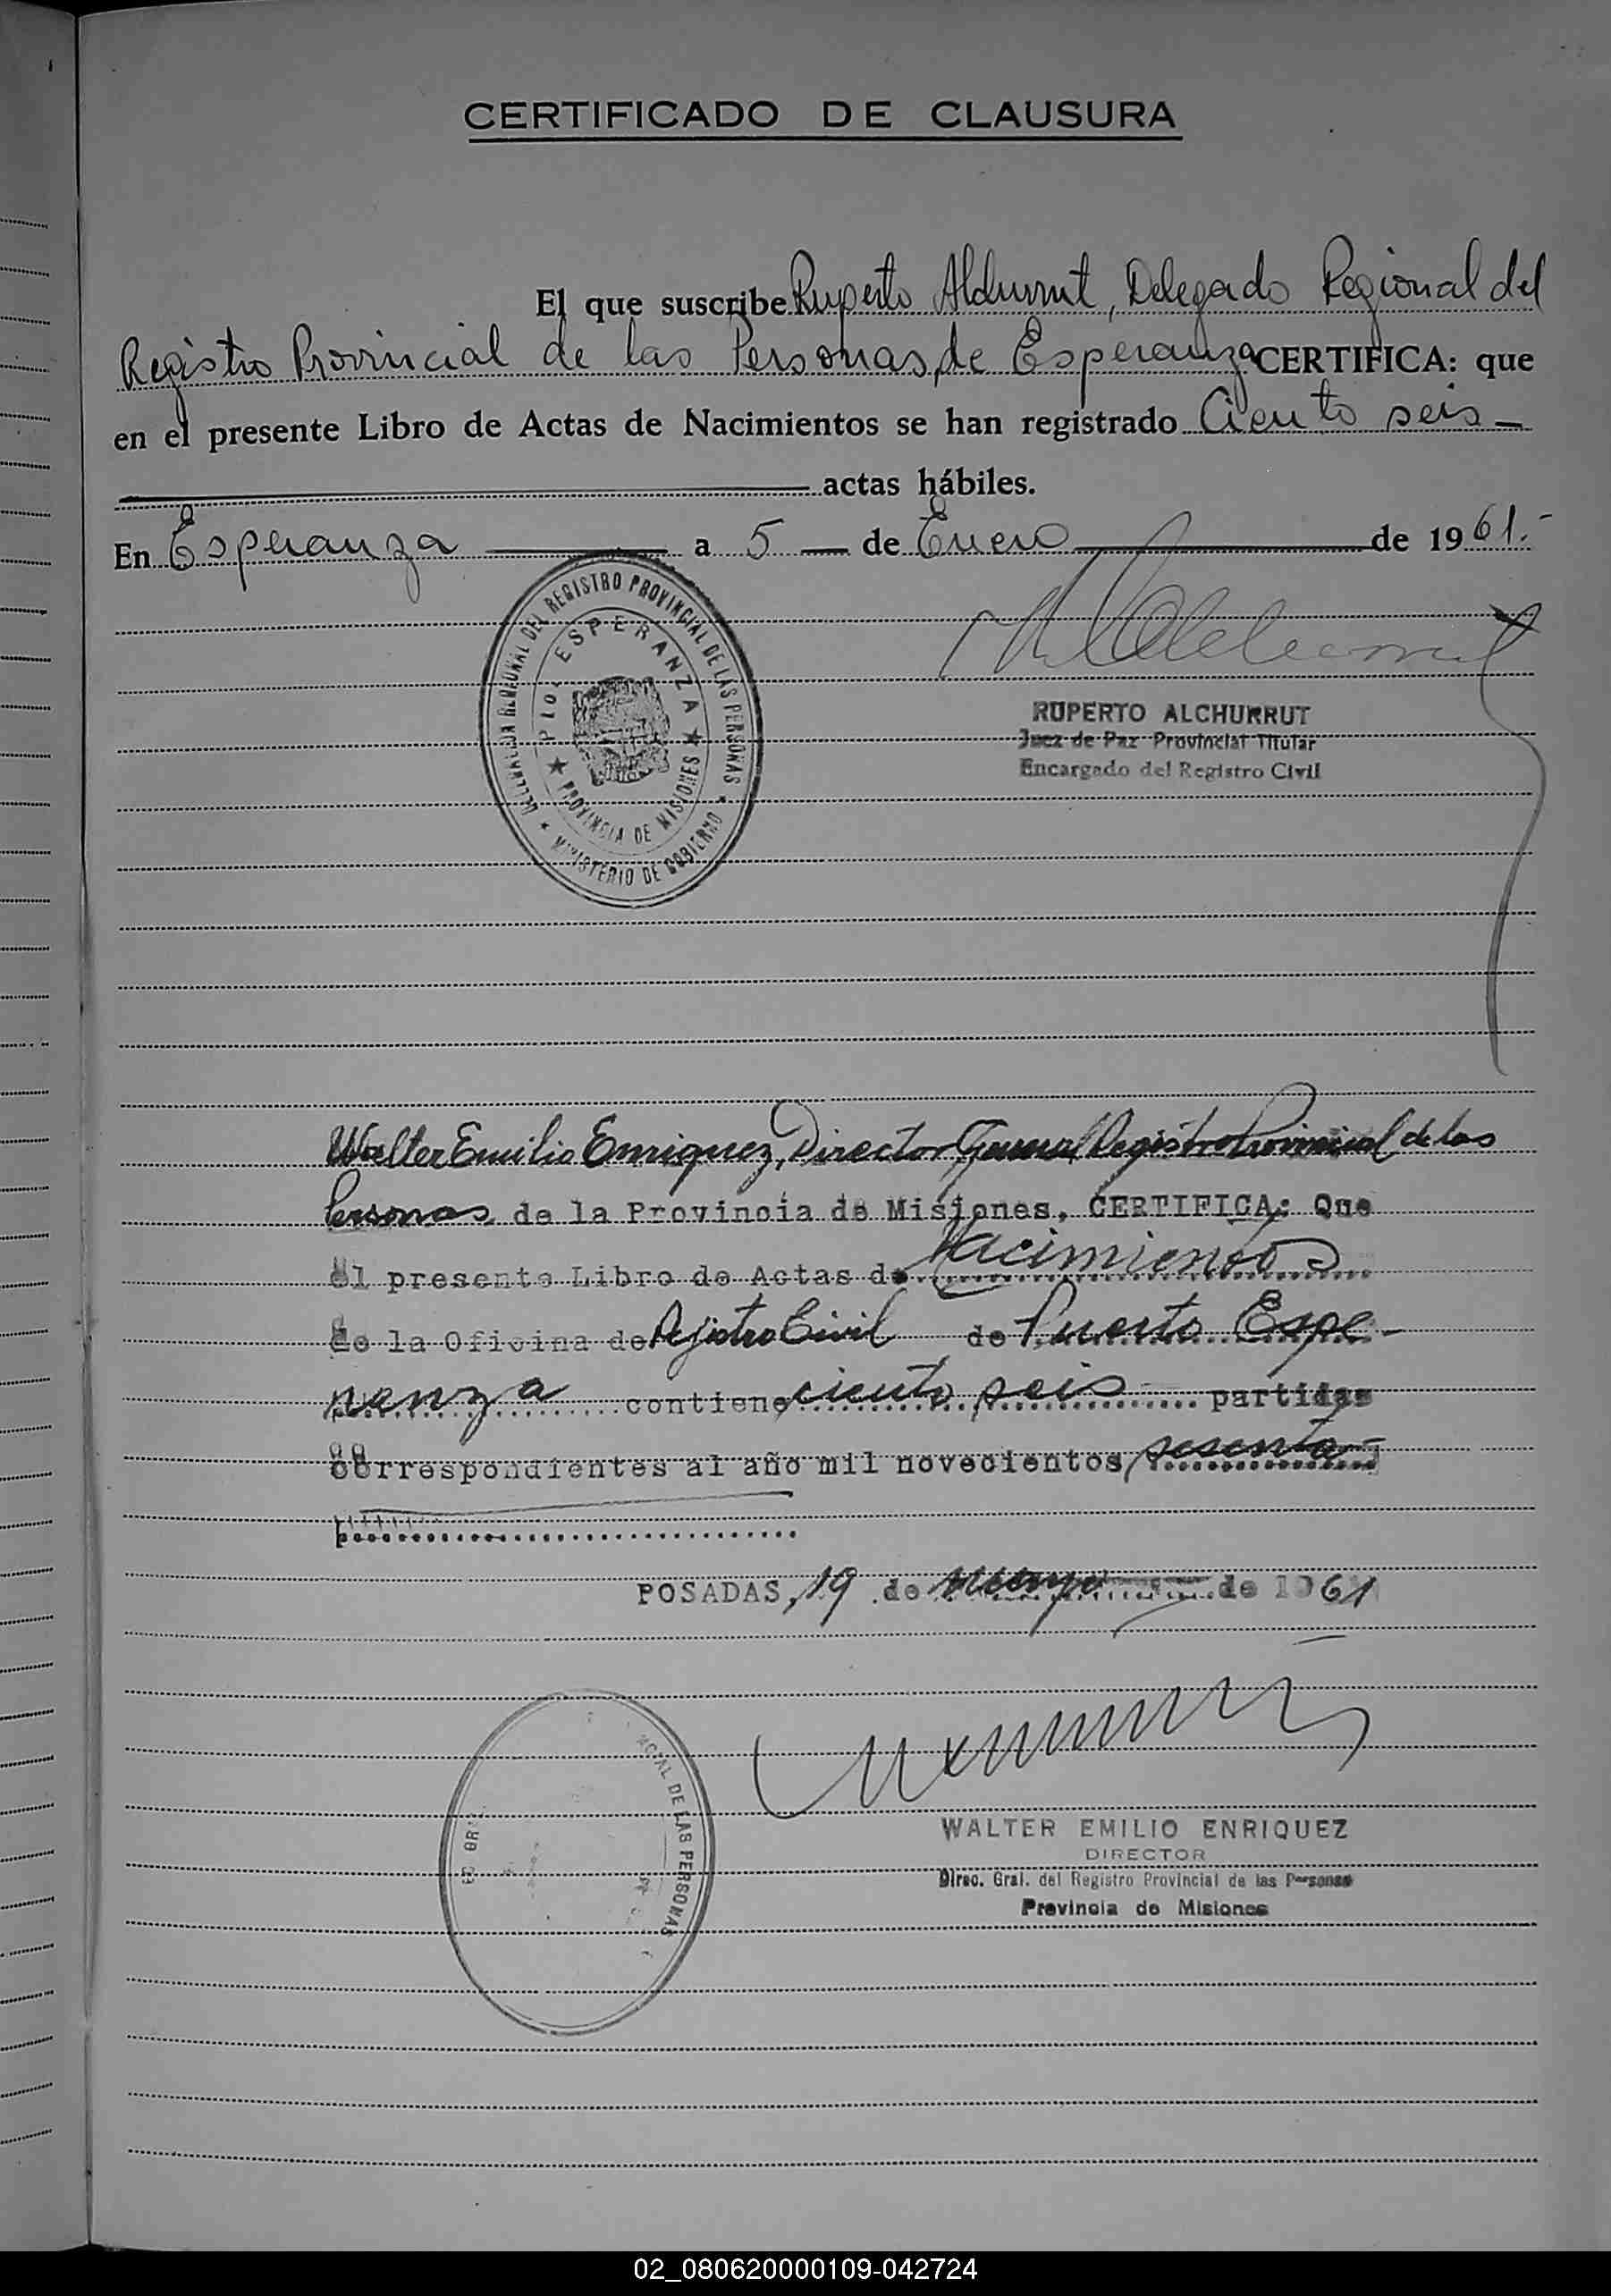 CERTIFICADO DE CLAUSURA
El que suscribe Ruperto Alchurrut, Delegado Regional del
Registro Provincial de las Personas, de Esperanza CERTIFICA: que
en el presente Libro de Actas de Nacimientos se han registrado Ciento seis
actas hábiles.
En Esperanza a 5 de Enero de 1961.-
DELEGACION REGIONAL DEL REGISTRO PROVINCIAL DE LAS PERSONAS
PTO. ESPERANZA
PROVINCIA DE MISIONES
MINISTERIO DE GOBIERNO
RUPERTO ALCHURRUT
Juez de Paz Provincial Titular
Encargado del Registro Civil
Walter Emilio Enriquez, Director General Registro Provincial de las
Personas de la Provincia de Misiones, CERTIFICA: Que
el presente Libro de Actas de Nacimientos
de la Oficina de Registro Civil de Puerto Espe-
ranza contiene ciento seis partidas
correspondientes al año mil novecientos sesenta
POSADAS, 19 de de 1961
DE LAS PERSONAS
WALTER EMILIO ENRIQUEZ
DIRECTOR
Direc. Gral. del Registro Provincial de las Personas
Provincia de Misiones
02_080620000109-042724